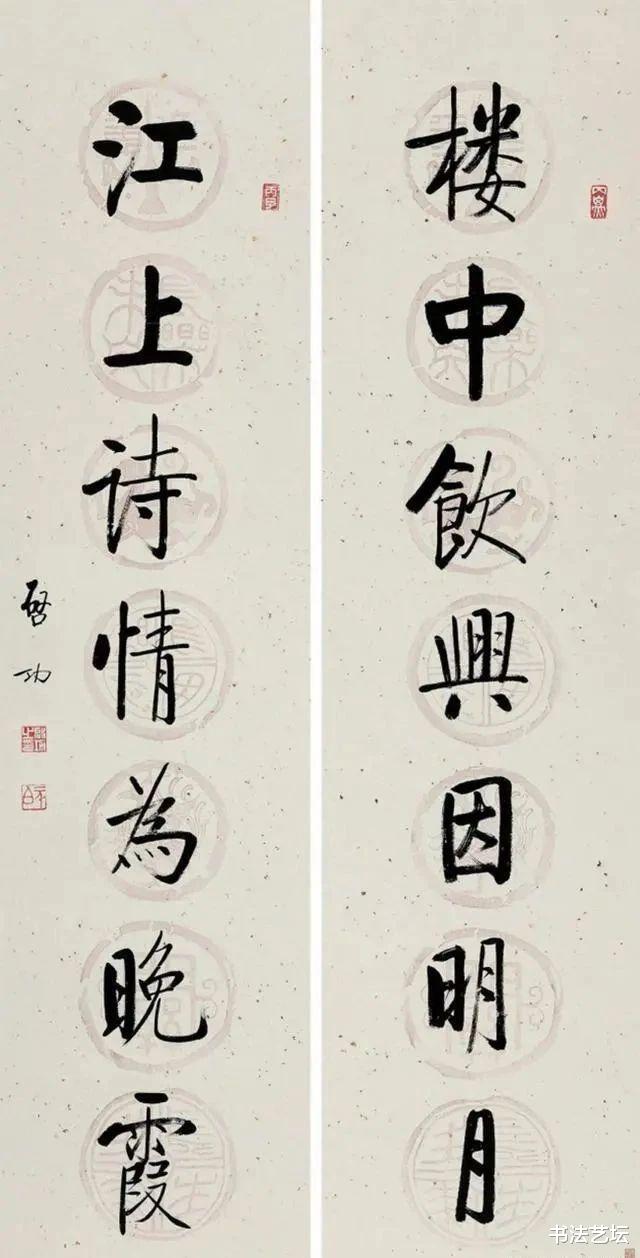 楼中飲興因明月
江上诗情為晚霞
啓功
书法艺坛